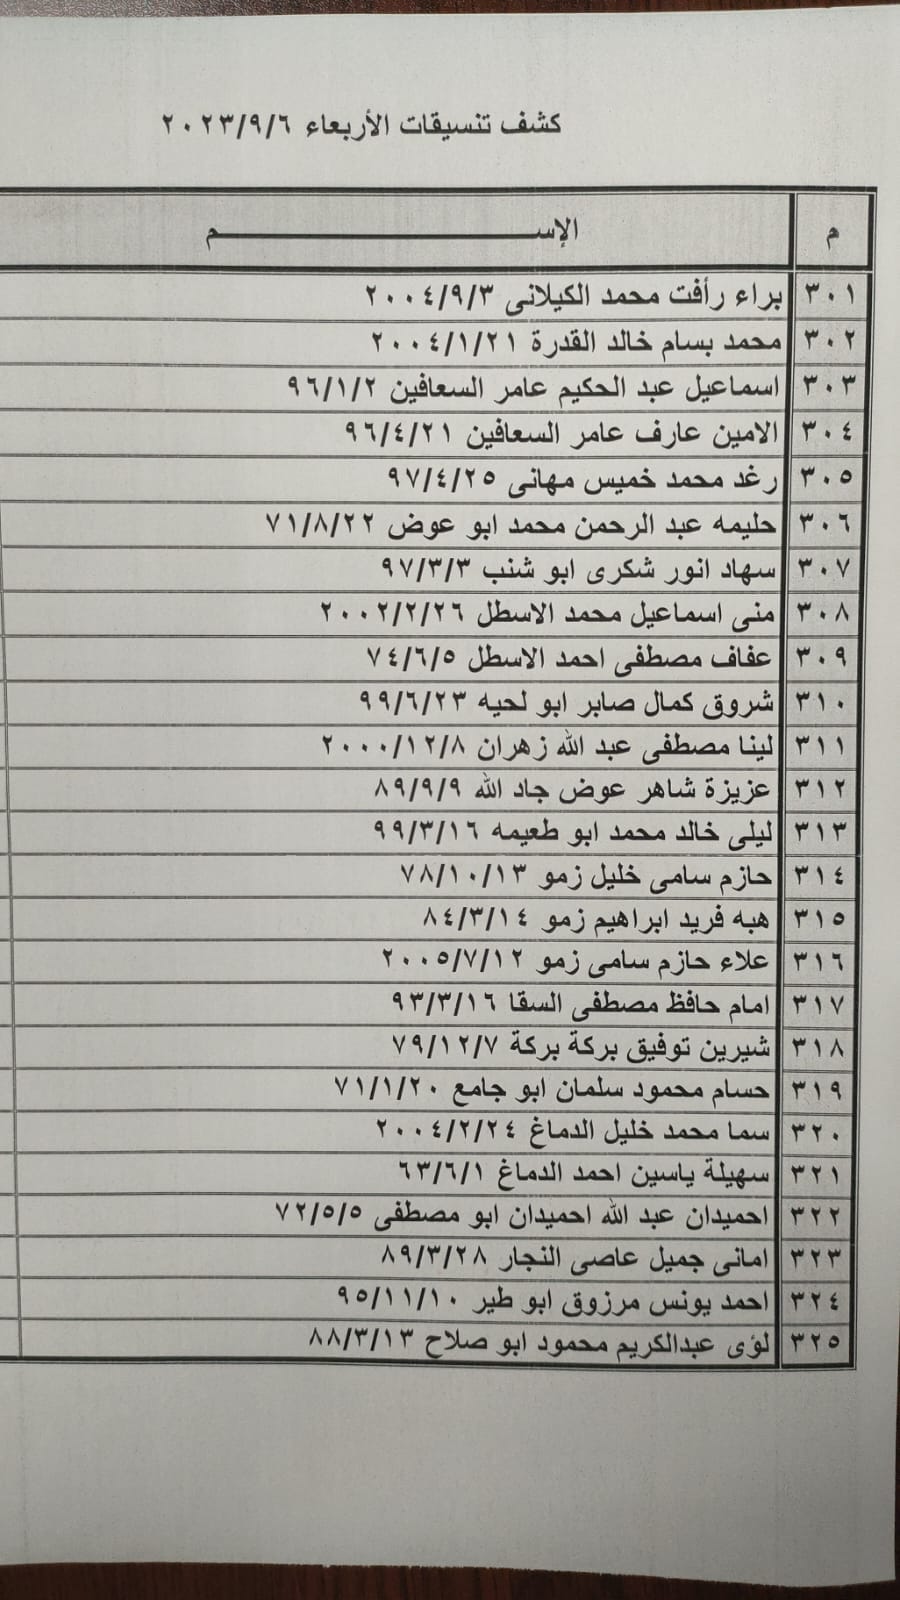 كشف تنسيقات الأربعاء ٢٠٢٣/٩/٦
م الإســـــــــــــــــــــم
٣٠١ براء رأفت محمد الكيلانى ٢٠٠٤/٩/٣
٣٠٢ محمد بسام خالد القدرة ٢٠٠٤/١/٢١
٣٠٣ اسماعيل عبد الحكيم عامر السعافين ٩٦/١/٢
٣٠٤ الامين عارف عامر السعافين ٩٦/٤/٢١
٣٠٥ رغد محمد خميس مهانى ٩٧/٤/٢٥
٣٠٦ حليمه عبد الرحمن محمد ابو عوض ٧١/٨/٢٢
٣٠٧ سهاد انور شكرى ابو شنب ٩٧/٣/٣
٣٠٨ منى اسماعيل محمد الاسطل ٢٠٠٢/٢/٢٦
٣٠٩ عفاف مصطفى احمد الاسطل ٧٤/٦/٥
٣١٠ شروق كمال صابر ابو لحيه ٩٩/٦/٢٣
٣١١ لينا مصطفى عبد الله زهران ٢٠٠٠/١٢/٨
٣١٢ عزيزة شاهر عوض جاد الله ٨٩/٩/٩
٣١٣ ليلى خالد محمد ابو طعيمه ٩٩/٣/١٦
٣١٤ حازم سامى خليل زمو ٧٨/١٠/١٣
٣١٥ هبه فريد ابراهيم زمو ٨٤/٣/١٤
٣١٦ علاء حازم سامى زمو ٢٠٠٥/٧/١٢
٣١٧ امام حافظ مصطفى السقا ٩٣/٣/١٦
٣١٨ شيرين توفيق بركة بركة ٧٩/١٢/٧
٣١٩ حسام محمود سلمان ابو جامع ٧١/١/٢٠
٣٢٠ سما محمد خليل الدماغ ٢٠٠٤/٢/٢٤
٣٢١ سهيلة ياسين احمد الدماغ ٦٣/٦/١
٣٢٢ احميدان عبد الله احميدان ابو مصطفى ٧٢/٥/٥
٣٢٣ امانى جميل عاصى النجار ٨٩/٣/٢٨
٣٢٤ احمد يونس مرزوق ابو طير ٩٥/١١/١٠
٣٢٥ لؤى عبدالكريم محمود ابو صلاح ٨٨/٣/١٣